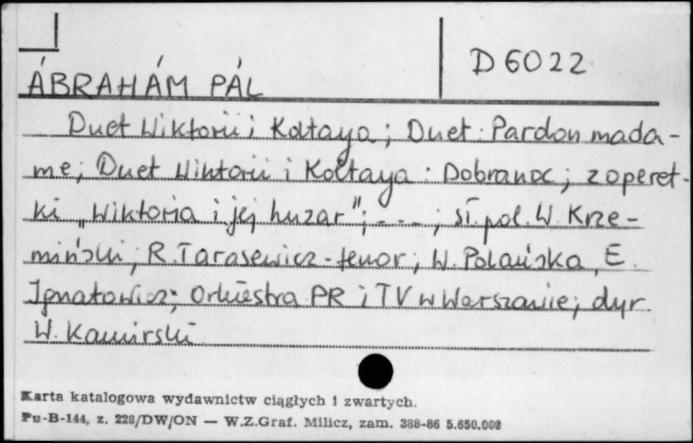 D 6022
ÁBRAHÁM PÁL
Duet Wiktorii i Koltaya; Duet: Pardon mada-
me; Duet Wiktorii i Koltaya: Dobranoc; z operet-
ki „Wiktoria i jej huzar"; - - - ; sł. pol. W. Krze-
miński; R. Tarasewicz - tenor; W. Polańska, E.
Ignatowicz; Orkiestra PR i TV w Warszawie; dyr.
W. Kamirski
Karta katalogowa wydawnictw ciągłych i zwartych.
Pu-B-144, z. 228/DW/ON — W.Z.Graf. Milicz, zam. 388-86 5.650.000